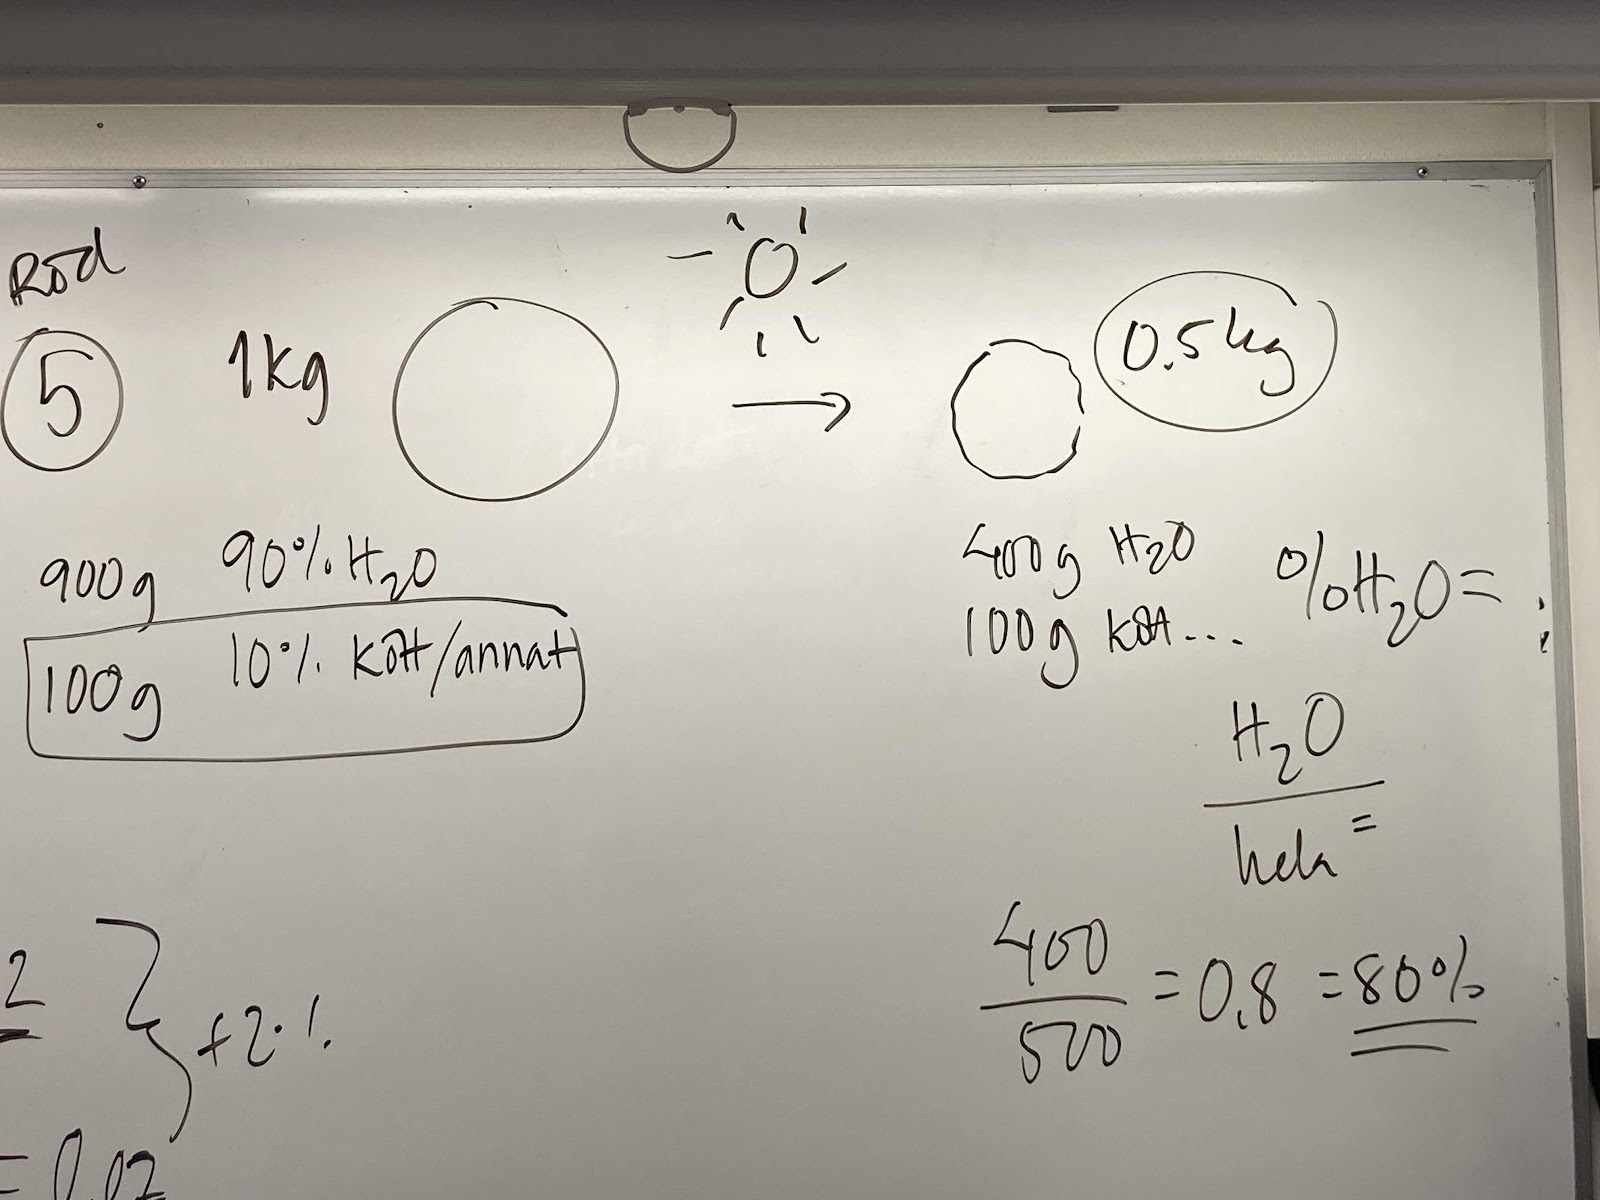 Röd
5
1kg
0.5kg
900g 90% H₂O
100g 10% kött/annat
400g H₂O
100g kött...
%H₂O=
H₂O
hela =
400
500
= 0,8 = 80%
2
+2%
= 0,02